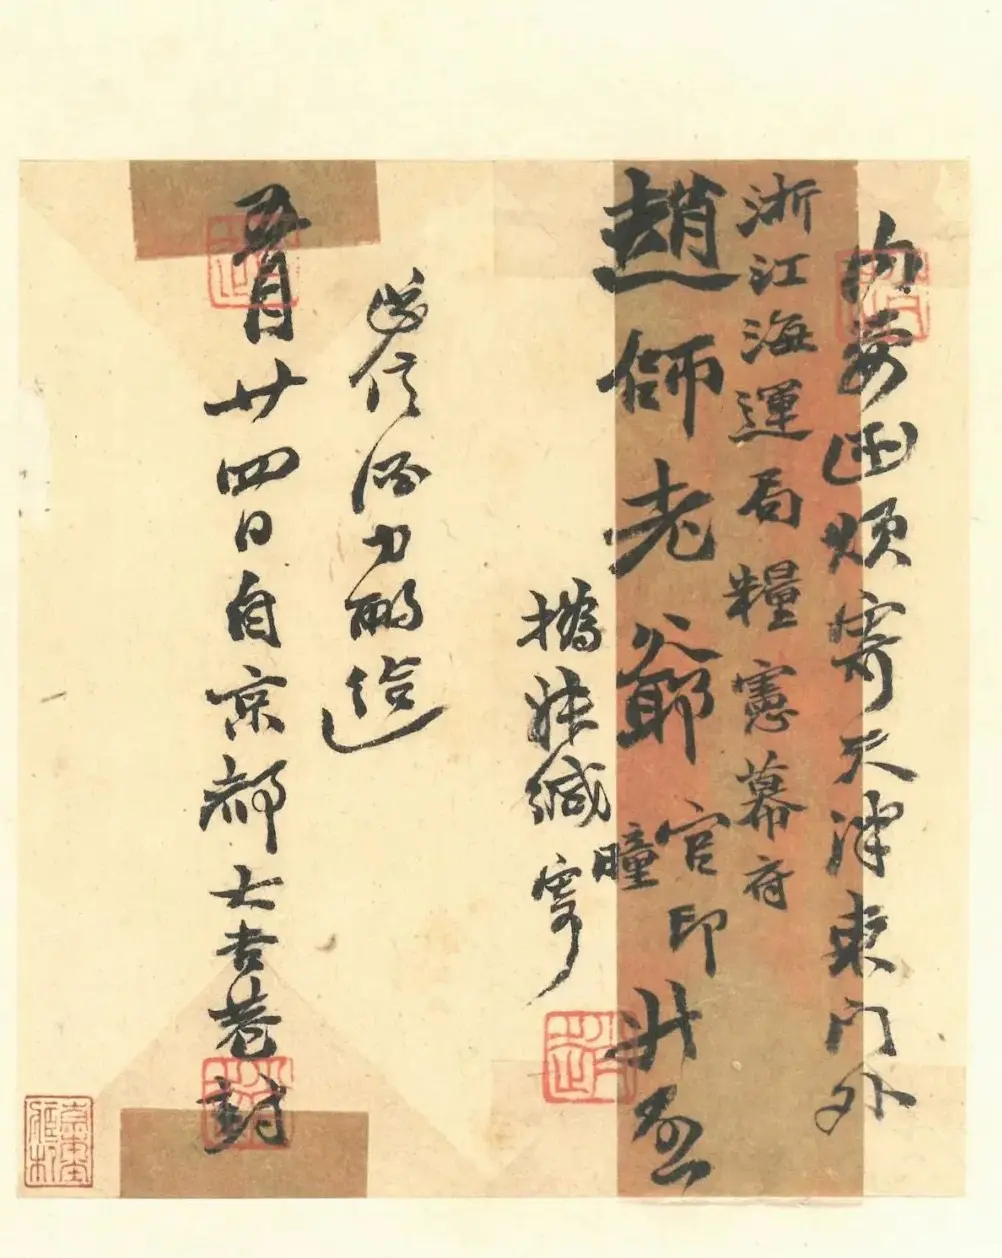 内要函煩寄天津東門外
浙江海運局糧憲幕府
趙師老爺官印曈升啟
撝叔緘寄
信酒力酬給
五月廿四日自京都七吉巷封